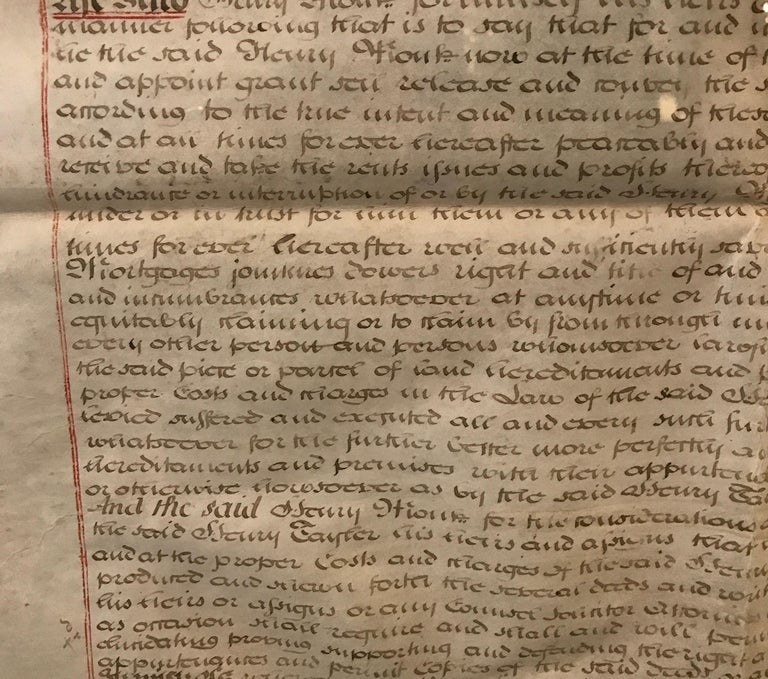 the said Henry Monk for himself his heirs
manner following that is to say that for and
he the said Henry Monk now at the time of
and appoint grant sell release and convey the
according to the true intent and meaning of these
and at all times for ever hereafter peaceably and
receive and take the rents issues and profits thereo
hindrance or interruption of or by the said Henry
under or in trust for him them or any of them
times for ever hereafter well and sufficiently sav
Mortgages jointures dowers right and title of and
and incumbrances whatsoever at anytime or
equitably claiming or to claim by from through
every other person and persons whomsoever
the said piece or parcel of land hereditaments and
proper Costs and charges in the Law of the said
levied suffered and executed all and every such fur
whatsoever for the further better more perfectly
hereditaments and premises with their appurten
or otherwise howsoever as by the said Henry
And the said Henry Monk for the considerations
the said Henry Tayler his heirs and assigns that
and at the proper Costs and charges of the said Henr
produced and shewn forth the several deeds and
his heirs or assigns or any Counsel Solicitor Attorn
as occasion shall require and shall and will
elucidating proving supporting and defending the right
appurtenances and permit Copies of the said deeds or